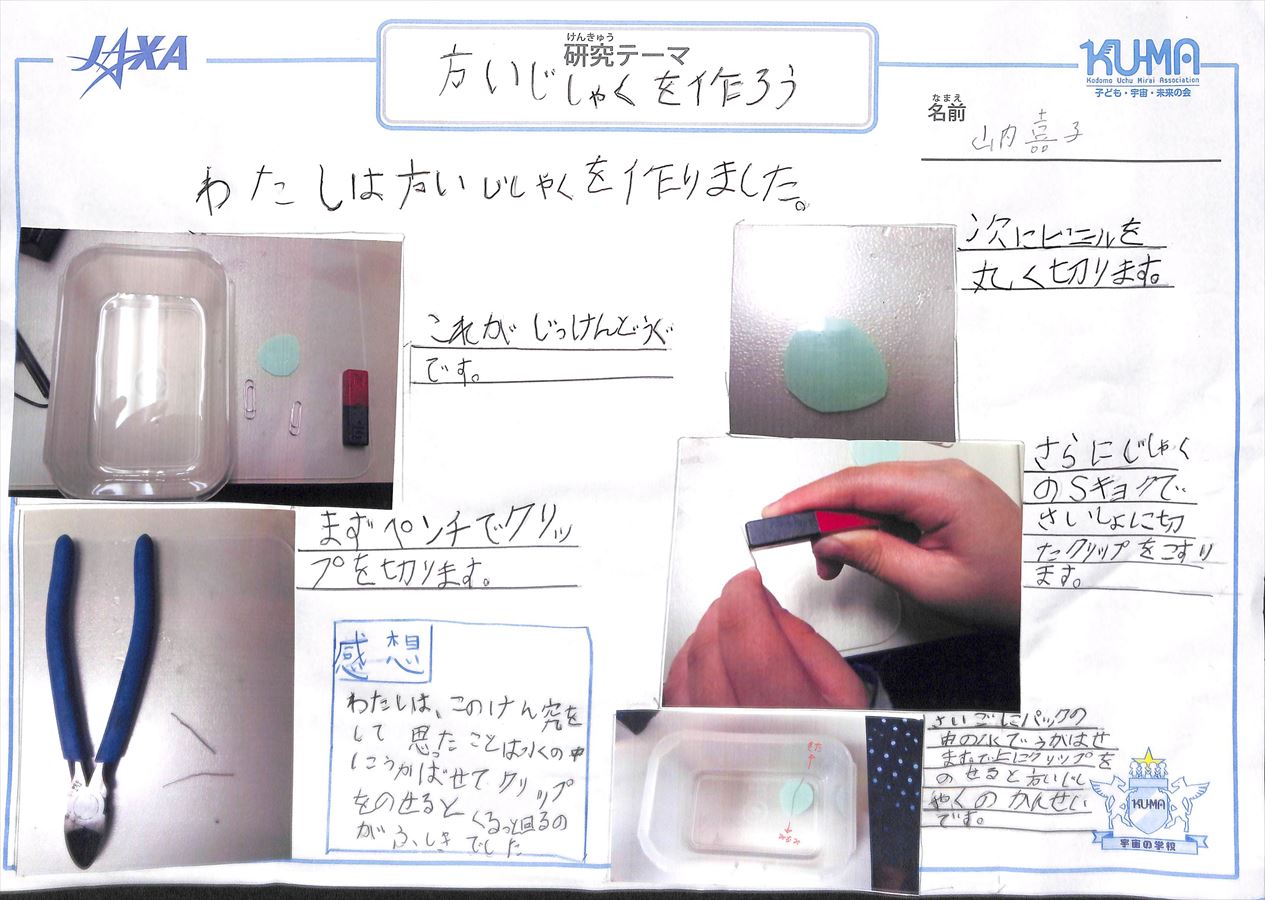 JAXA
けんきゅう
研究テーマ
方いじしゃくを作ろう
KU-MA
Kodomo Uchu Mirai Association
子ども・宇宙・未来の会
なまえ
名前
山内喜子
わたしは方いじしゃくを作りました。
これがじっけんどうぐ
です。
まずペンチでクリッ
プを切ります。
次にビニルを
丸く切ります。
さらにじしゃく
のSキョクで
さいしょに切
たクリップをこすり
ます。
さいごにパックの
中の水でうかはせ
ますで上にクリップを
のせると方いじし
ゃくのかんせい
です。
きた
みなみ
感想
わたしは、このけん究を
して思たことは水の中
にうかばせてクリップ
をのせるとくるっと回るの
がふしぎでした
KU-MA
宇宙の学校